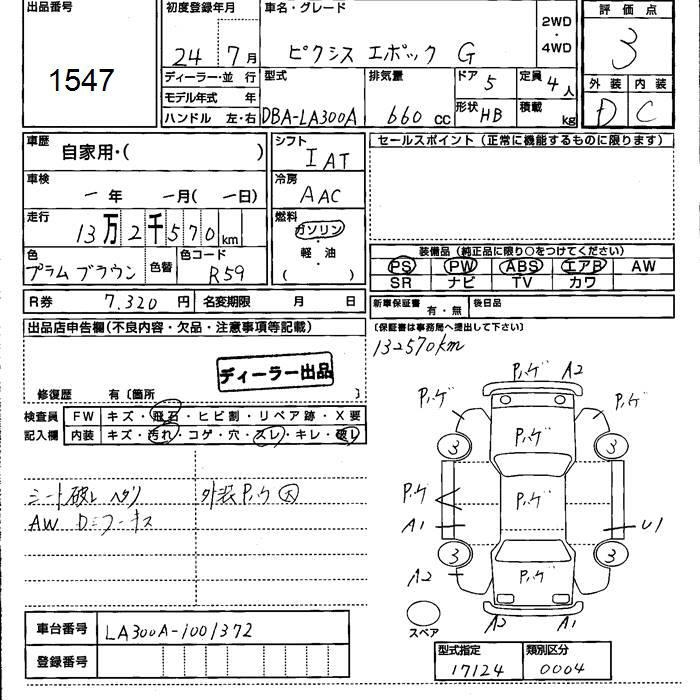 出品番号
1547
初度登録年月
24年 7月
車名・グレード
ピクシス エポック G
2WD
・
4WD
評価点
3
外装 内装
D C
ディーラー・並行
モデル年式 年
ハンドル 左・右
型式
DBA-LA300A
排気量
660 cc
ドア 5
形状 HB
定員 4人
積載 kg
車歴
自家用・( )
車検
一年 一月(一日)
走行
13万2千570km
色
プラム ブラウン
色替
色コード
R59
シフト
IAT
冷房
AAC
燃料
ガソリン
・
軽・油
( )
セールスポイント(正常に機能するものに限ります)
装備品(純正品に限り○をつけてください)
PS PW ABS エアB AW
SR ナビ TV カワ
R券 7.320円 名変期限 月 日
新車保証書 有・無 後日品
(保証書は事務局へ提出して下さい)
132570km
出品店申告欄(不良内容・欠品・注意事項等記載)
ディーラー出品
修復歴 有〔箇所 〕
検査員
記入欄
FW キズ・飛石・ヒビ割・リペア跡・X要
内装 キズ・汚れ・コゲ・穴・スレ・キレ・破レ
シート破レ ヘタリ
外装 P.ハゲ 大
AW
P.ハゲ A2
P.ハゲ P.ハゲ P.ハゲ
3 3
P.ハゲ P.ハゲ
A1 U1
3 3
A2 P.ハゲ
スペア
A2 A1
車台番号 LA300A-1001372
登録番号
型式指定 類別区分
17124 0004